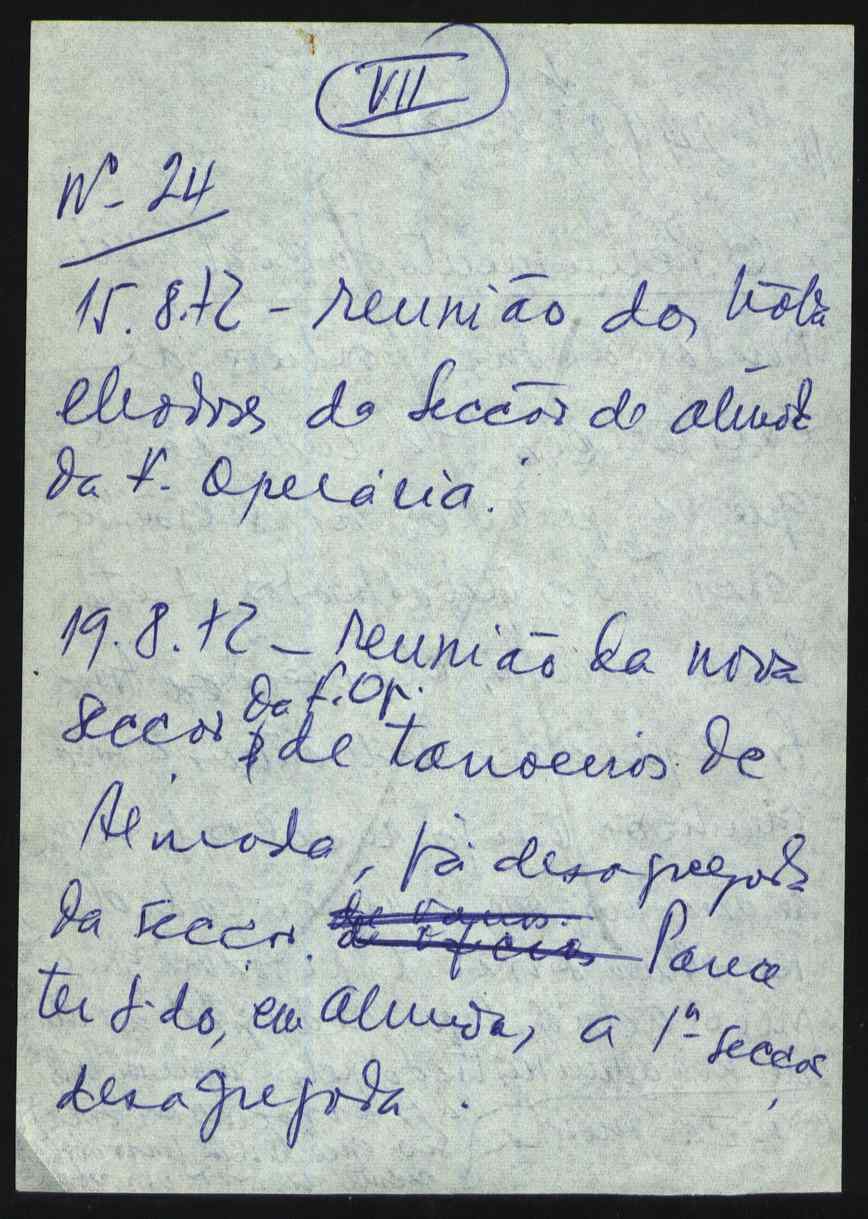 VII
Nº 24
15.8.72 - reunião dos traba
lhadores da Secção de Almada
da F. Operária.
19.8.72 - reunião da nova
secção da F. Op. de tanoeiros de
Almada, já desagregada
da secção. Parece
ter sido, em Almada, a 1ª secção
desagregada.